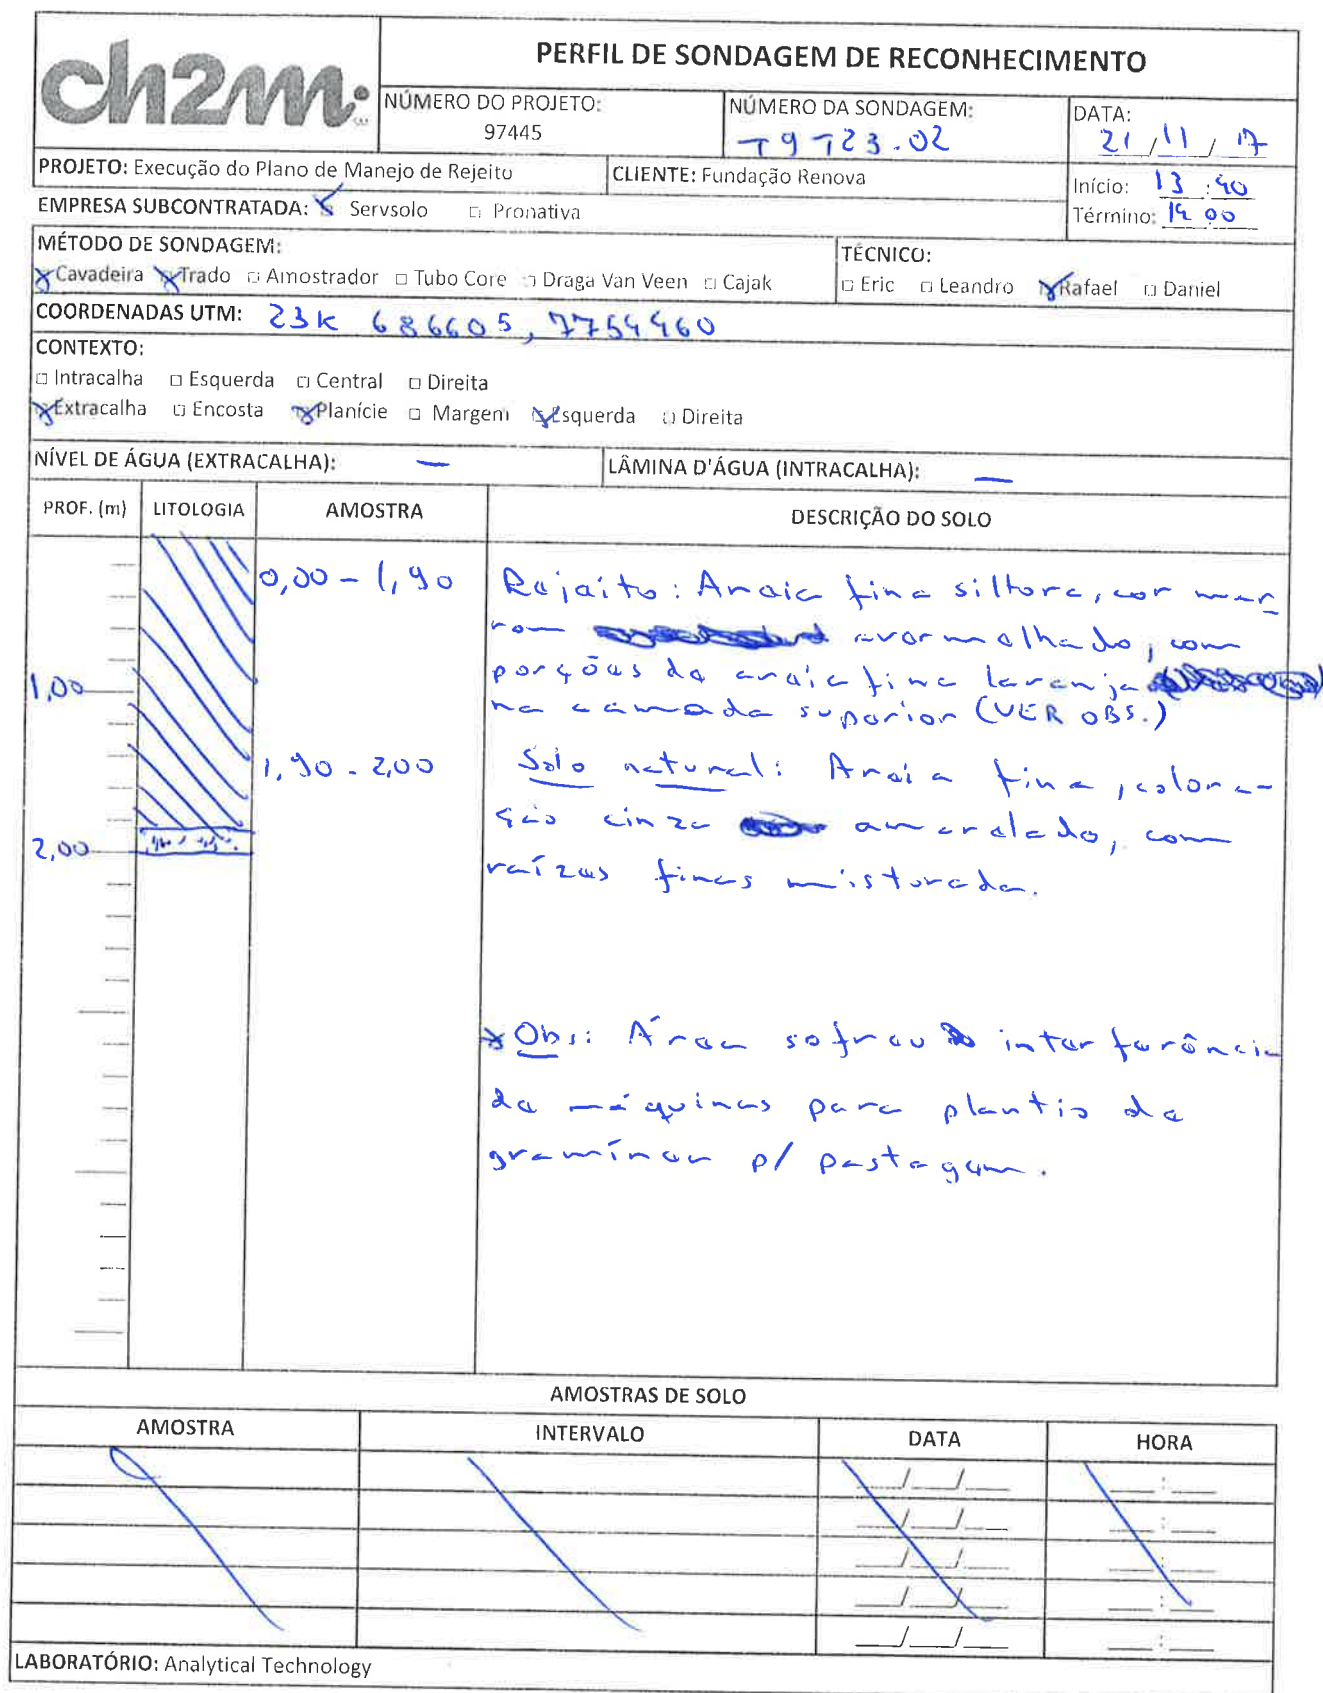 ch2m
PERFIL DE SONDAGEM DE RECONHECIMENTO
NÚMERO DO PROJETO:
97445
NÚMERO DA SONDAGEM:
T9T23.02
DATA:
21/11/17
PROJETO: Execução do Plano de Manejo de Rejeito
CLIENTE: Fundação Renova
Início: 13:40
Término: 14 00
EMPRESA SUBCONTRATADA: Servsolo □ Pronativa
MÉTODO DE SONDAGEM:
Cavadeira Trado □ Amostrador □ Tubo Core □ Draga Van Veen □ Cajak
TÉCNICO:
□ Eric □ Leandro Rafael □ Daniel
COORDENADAS UTM: 23K 686605, 7754460
CONTEXTO:
□ Intracalha □ Esquerda □ Central □ Direita
Extracalha □ Encosta Planície □ Margem Esquerda □ Direita
NÍVEL DE ÁGUA (EXTRACALHA): —
LÂMINA D'ÁGUA (INTRACALHA): —
PROF. (m) LITOLOGIA AMOSTRA DESCRIÇÃO DO SOLO
0,00 - 1,90 Rejeito: Areia fina siltosa, cor mar
rom avermelhado, com
porções de areia fina laranja
1,00
na camada superior (VER OBS.)
1,90 - 2,00 Solo natural: Areia fina, colora-
ção cinza amarelado, com
2,00
raízes finas misturada.
* Obs: Área sofreu interferência
de máquinas para plantio de
gramínea p/ pastagem.
AMOSTRAS DE SOLO
AMOSTRA INTERVALO DATA HORA
LABORATÓRIO: Analytical Technology